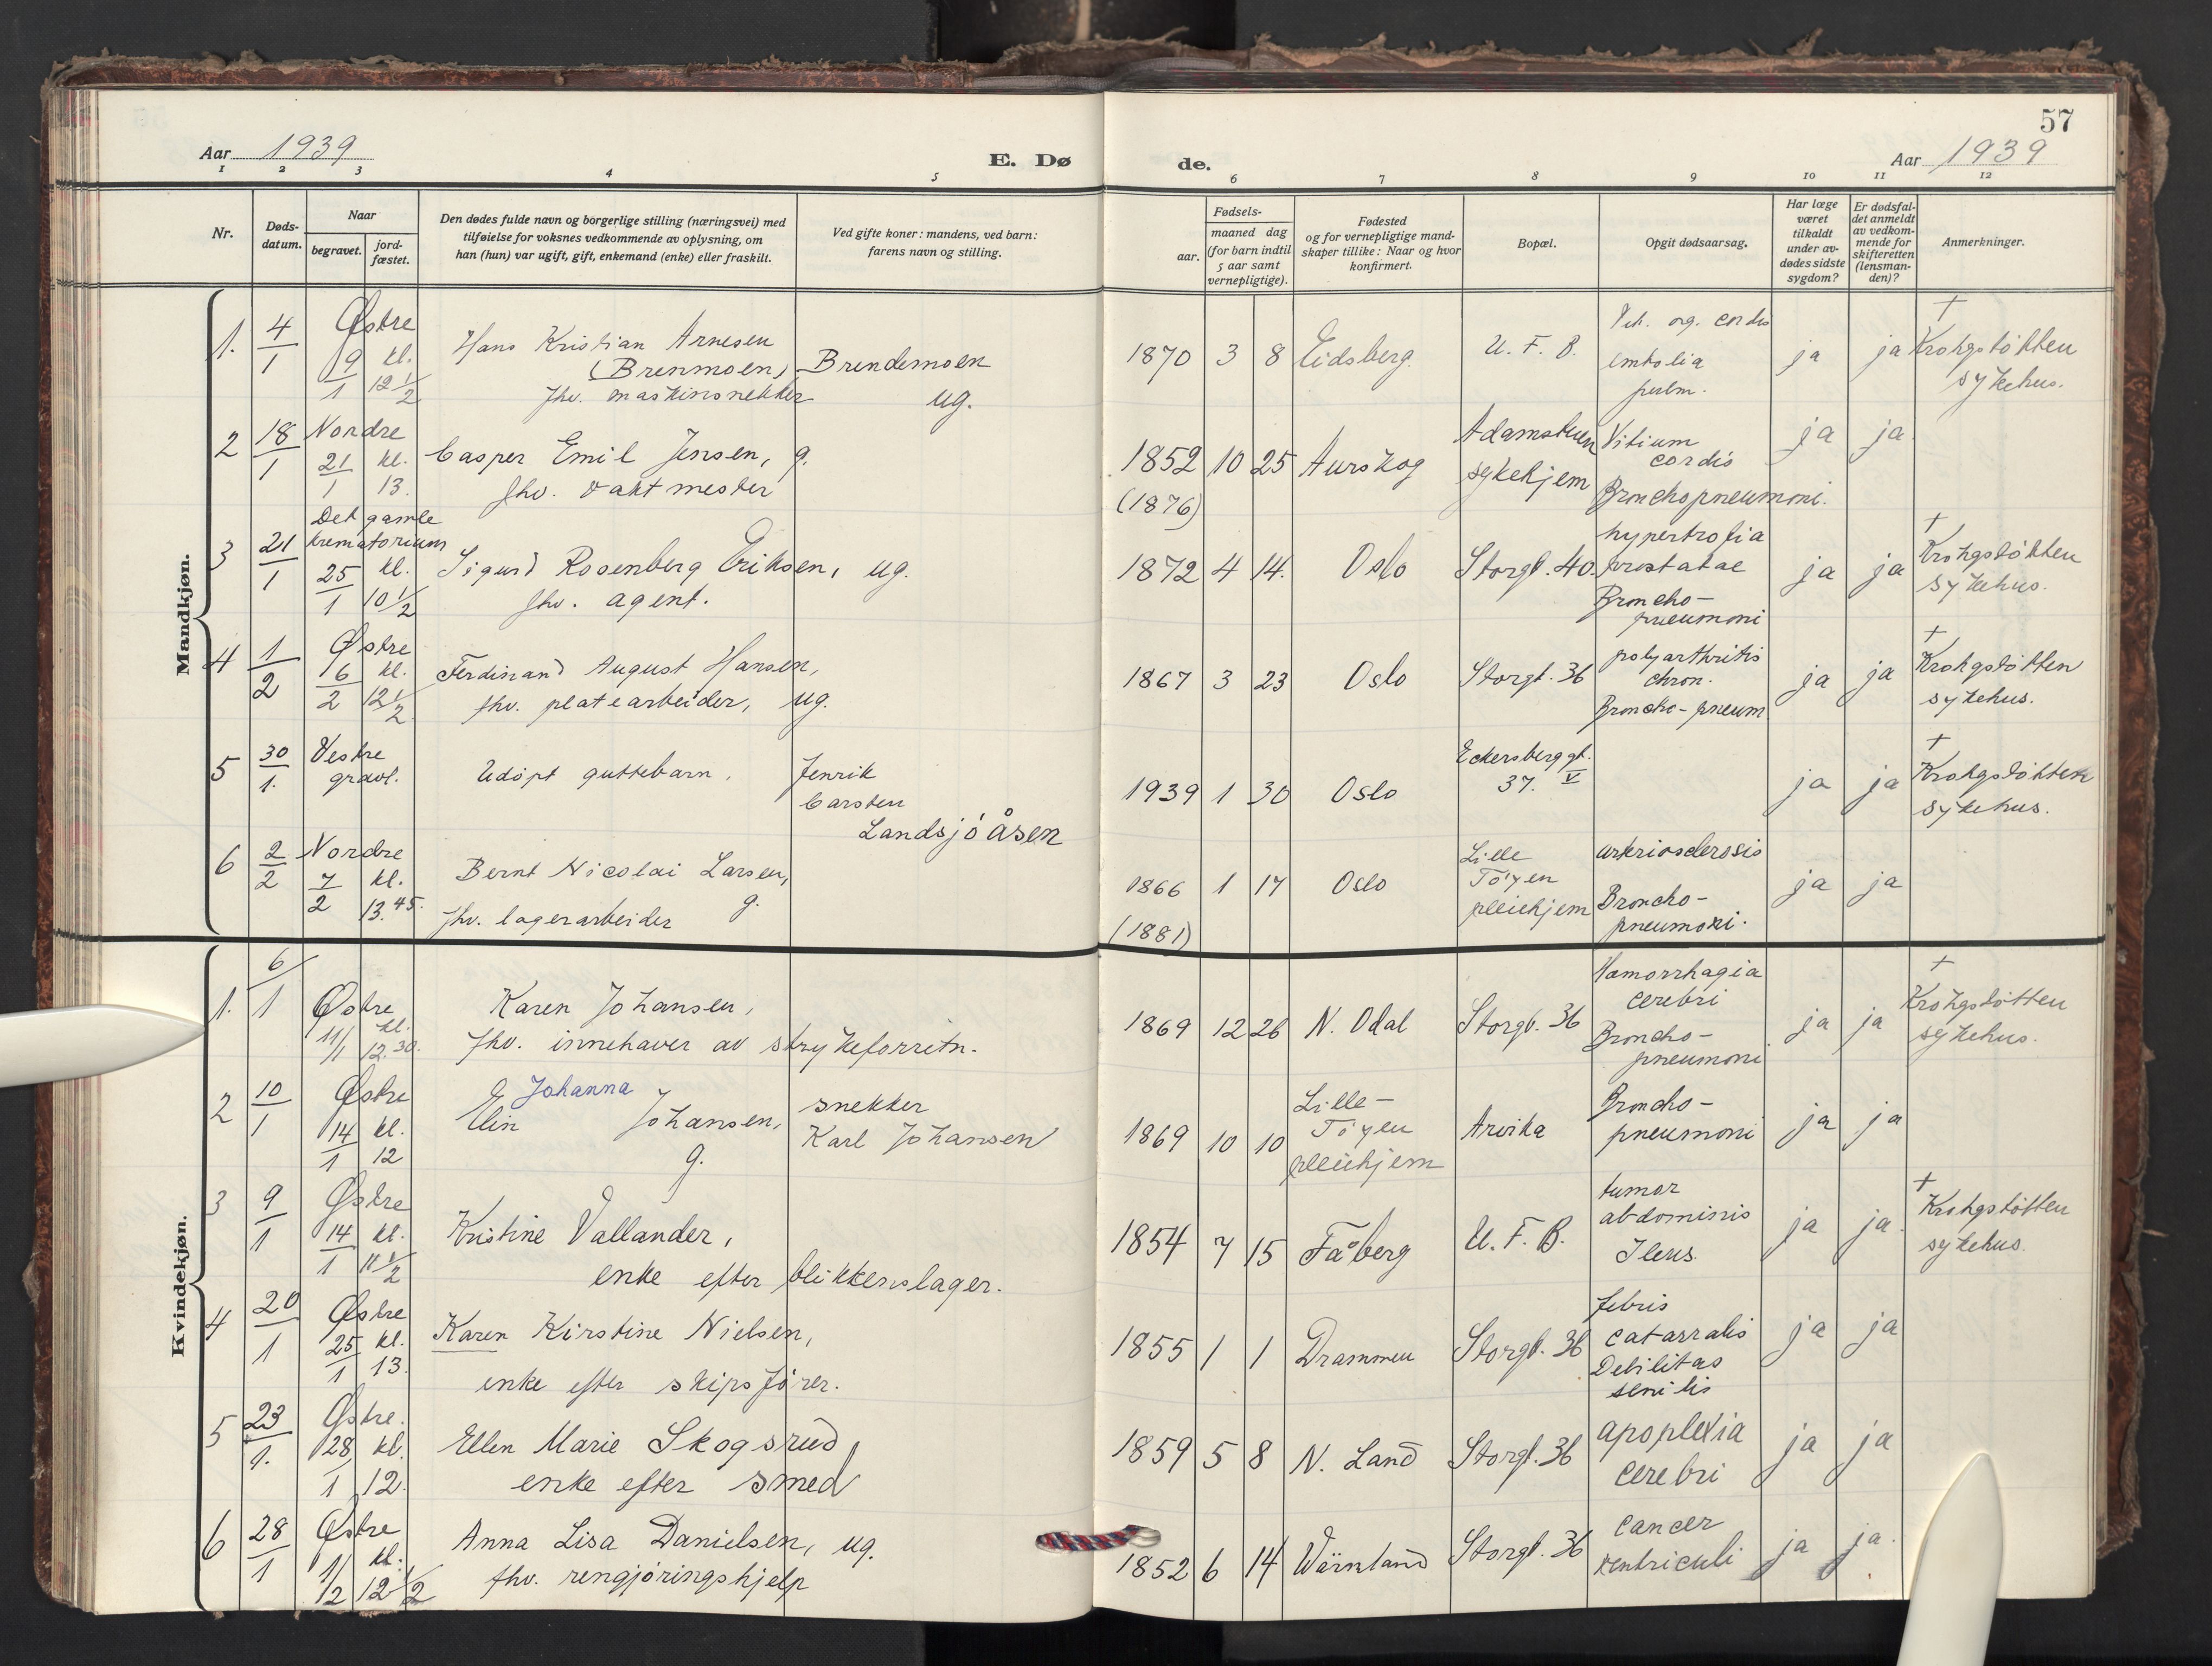 57
Aar 1939
E. Dø
de.
Aar 1939
1 2 3 4 5 6 7 8 9 10 11 12
Nr.
Døds-
datum.
Naar
begravet.
jord-
fæstet.
Den dødes fulde navn og borgerlige stilling (næringsvei) med
tilføielse for voksnes vedkommende av oplysning, om
han (hun) var ugift, gift, enkemand (enke) eller fraskilt.
Ved gifte koner: mandens, ved barn:
farens navn og stilling.
Fødsels-
aar.
maaned dag
(for barn indtil
5 aar samt
vernepligtige).
Fødested
og for vernepligtige mand-
skaper tillike: Naar og hvor
konfirmert.
Bopæl.
Opgit dødsaarsag.
Har læge
været
tilkaldt
under av-
dødes sidste
sygdom?
Er dødsfal-
det anmeldt
av vedkom-
mende for
skifteretten
(lensman-
den)?
Anmerkninger.
Mandkjøn.
1. 4/1 Østre 9/1 kl. 12 1/2
Hans Kristian Arnesen
(Brenmoen) Brendemoen
fhv. maskinsnekker ug.
1870 3 8 Eidsberg. U. F. B.
org. cordis
embolia
pulm.
ja ja
† Krohgstøtten
sykehus.
2 18/1 Nordre 21/1 kl. 13.
Casper Emil Jensen, g.
fhv. vaktmester
1852 10 25 Aurskog
(1876)
Adamstuen
sykehjem
Vitium
cordis
Bronchopneumoni.
ja ja
3 21/1 Det gamle
krematorium
25/1 kl. 10 1/2
Sigurd Rosenberg Eriksen, ug.
fhv. agent.
1872 4 14. Oslo Storgt. 40.
hypertrofia
prostatae
Broncho-
pneumoni
ja ja
† Krohgstøtten
sykehus.
4 1/2 Østre 6/2 kl. 12 1/2
Ferdinand August Hansen,
fhv. platearbeider, ug.
1867 3 23 Oslo Storgt. 36
polyarthritis
chron.
Broncho-pneum
ja ja
† Krohgstøtten
sykehus.
5 30/1. Vestre
gravl.
Udøpt guttebarn.
Jenrik
Carsten
Landsjøåsen
1939 1 30 Oslo
Eckersberggt.
37. V
ja ja
† Krohgstøtten
sykehus.
6 2/2 Nordre 7/2 kl. 13.45.
Bernt Nicolai Larsen,
g.
fhv. lagerarbeider
1866 1 17 Oslo
(1881)
Lille
Tøyen
pleiehjem
arteriosclerosis
Broncho-
pneumoni.
ja ja
Kvindekjøn.
1. 6/1 Østre 11/1 kl. 12.30.
Karen Johansen,
fhv. innehaver av strykeforretn.
1869 12 26 N. Odal Storgt. 36
Hæmorrhagia
cerebri
Broncho-
pneumoni
ja ja
† Krohgstøtten
sykehus.
2 10/1 Østre 14/1 kl. 12
Johanna
Elin Johansen,
g.
snekker
Karl Johansen
1869 10 10
Lille-
Tøyen
pleiehjem
Arvika
Broncho-
pneumoni
ja ja
3 9/1 Østre 14/1 kl. 11 1/2
Kristine Vallander,
enke efter blikkenslager.
1854 7 15 Fåberg U. F. B.
tumor
abdominis
Ileus.
ja ja.
† Krohgstøtten
sykehus.
4 20/1 Østre 25/1 kl. 13.
Karen Kirstine Nielsen,
enke efter skipsfører.
1855 1 1 Drammen Storgt. 36
febris
catarralis
Debilitas
senilis
ja ja
5 23/1. Østre. 28/1 kl. 12.
Ellen Marie Skogsrud
enke efter smed
1859 5 8 N. Land Storgt. 36
apoplexia
cerebri
ja ja
6 28/1 Østre 1/2 kl. 12 1/2
Anna Lisa Danielsen, ug.
fhv. rengjøringshjelp
1852 6 14 Wärmland Storgt. 36
cancer
ventriculi
ja ja.